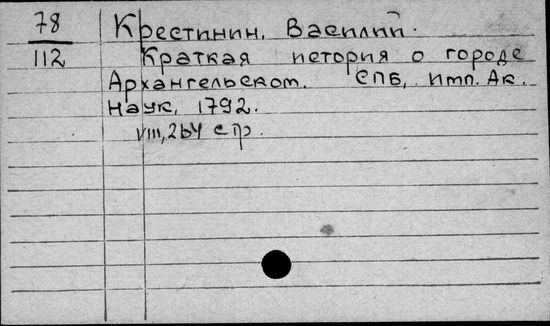 78 Крестинин, Василий.
112 Краткая история о городе
Архангельском. СПб, имп. Ак.
Наук, 1792.
VIII, 264 стр.